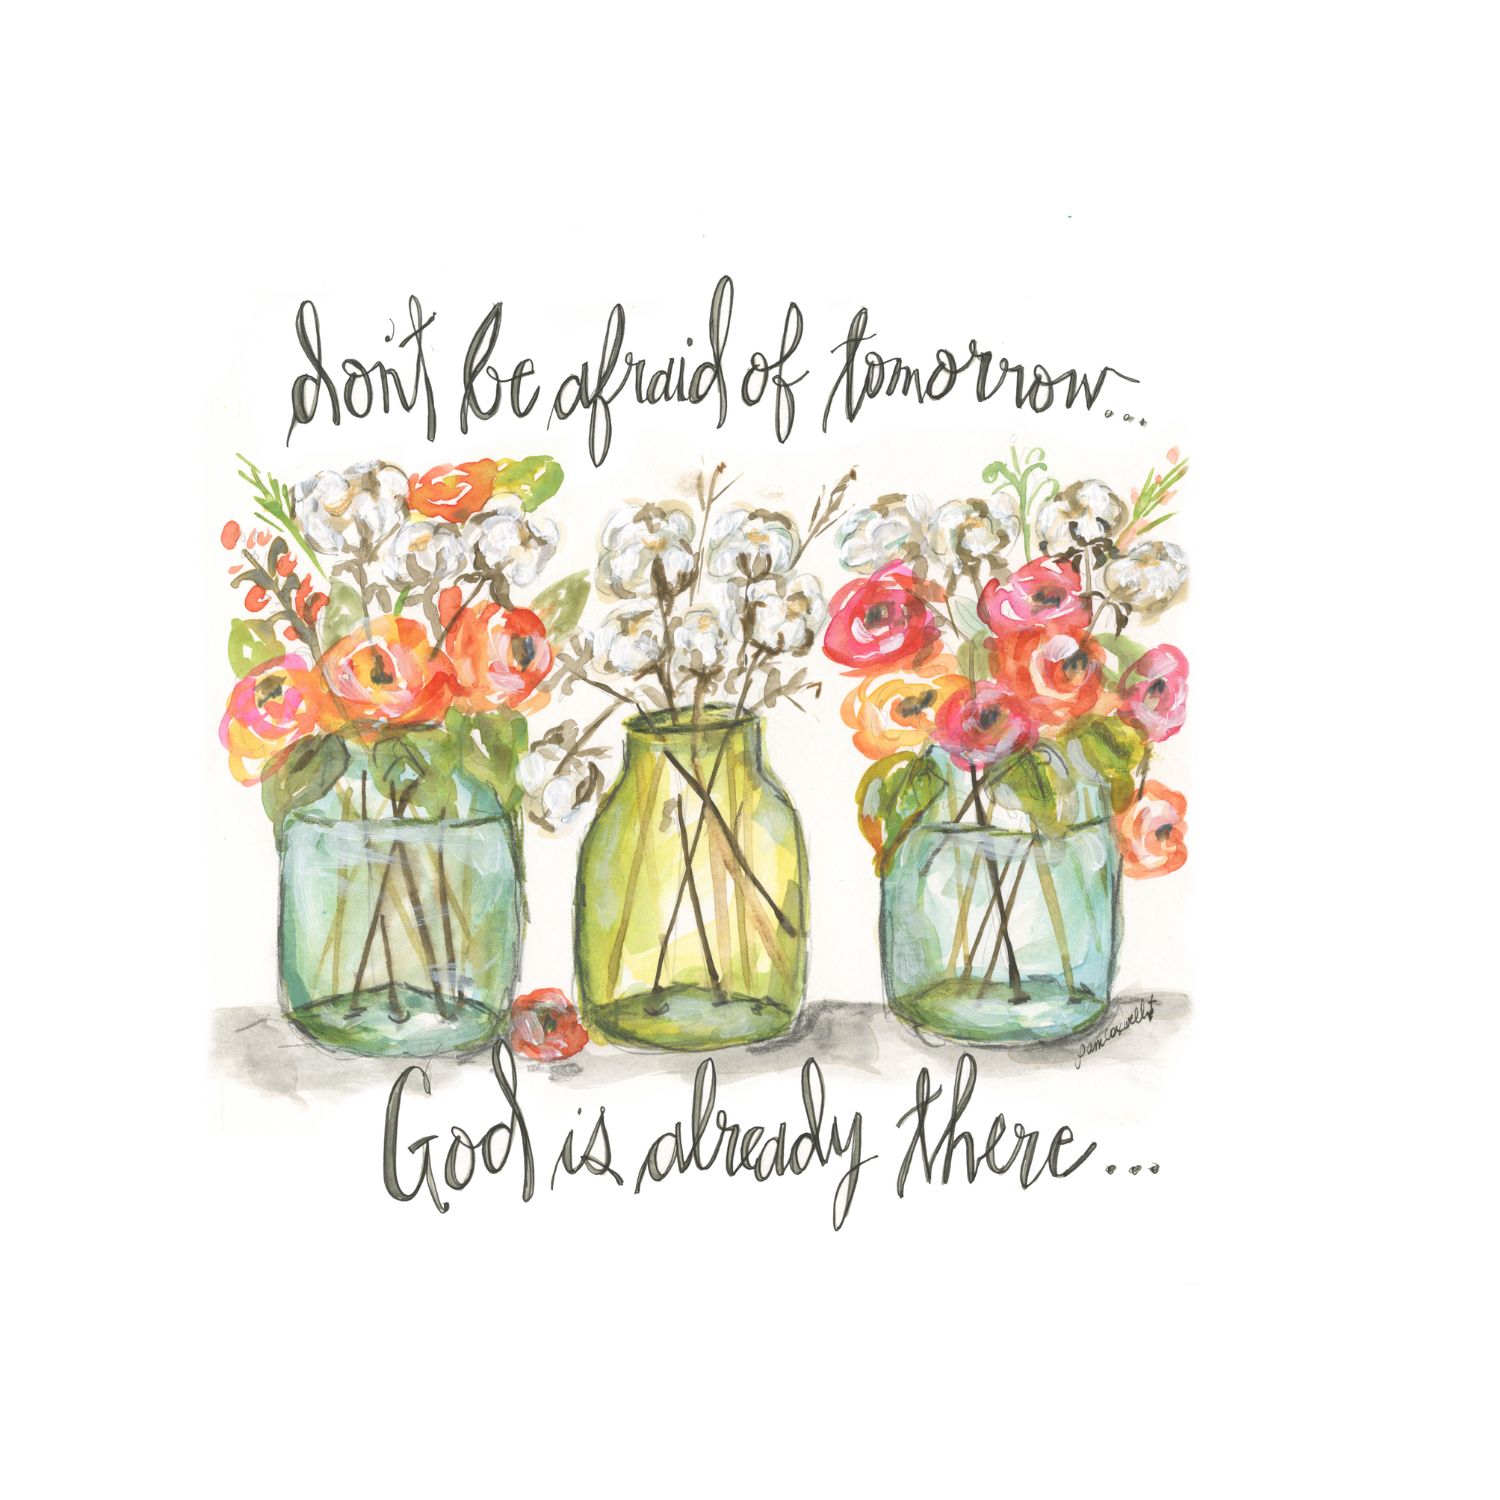 don't be afraid of tomorrow...
pam coxwell
God is already there...